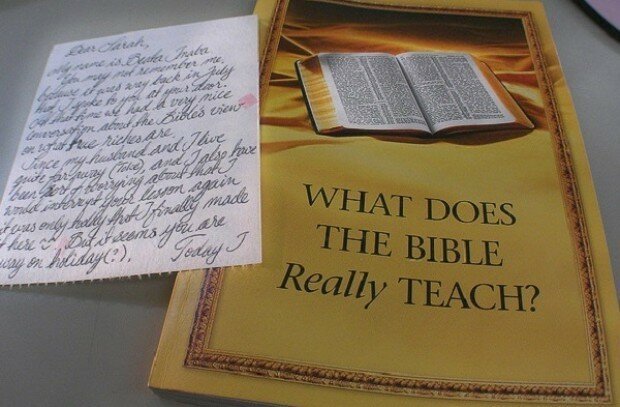 Dear Sarah,
My name is Beata Inaba
You may not remember me,
because it was way back in July
that I spoke to you at your door.
At that time we had a very nice
conversation about the Bible's view
on what true riches are.
Since my husband and I live
quite far away and I also have
been sort of worrying about that I
would interrupt your lesson again
it was only today that I finally made
it here But it seems you are
way on holiday(?). Today I
WHAT DOES
THE BIBLE
Really TEACH?